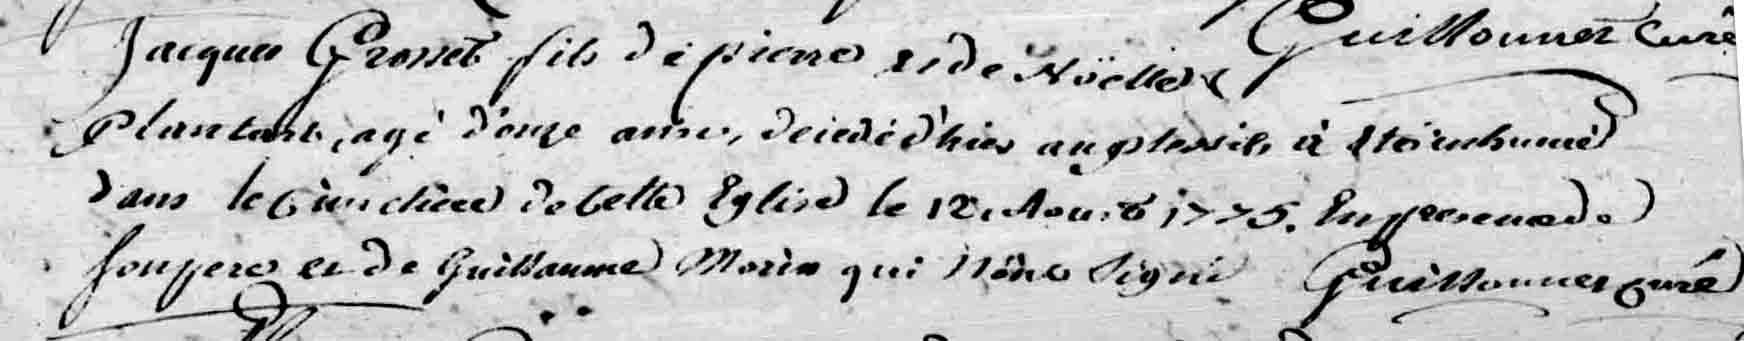 Guillonnet Curé
Jacques Grosset fils de pierre et de Noëlle
Plantart, agé d'onze ans, decedé d'hier au plessis à eté inhumé
dans le Cimetiere de Cette Eglise le 12. Aoust 1775. En presence de
son pere et de Guillaume Morin qui n'ont signé Guillonnet curé